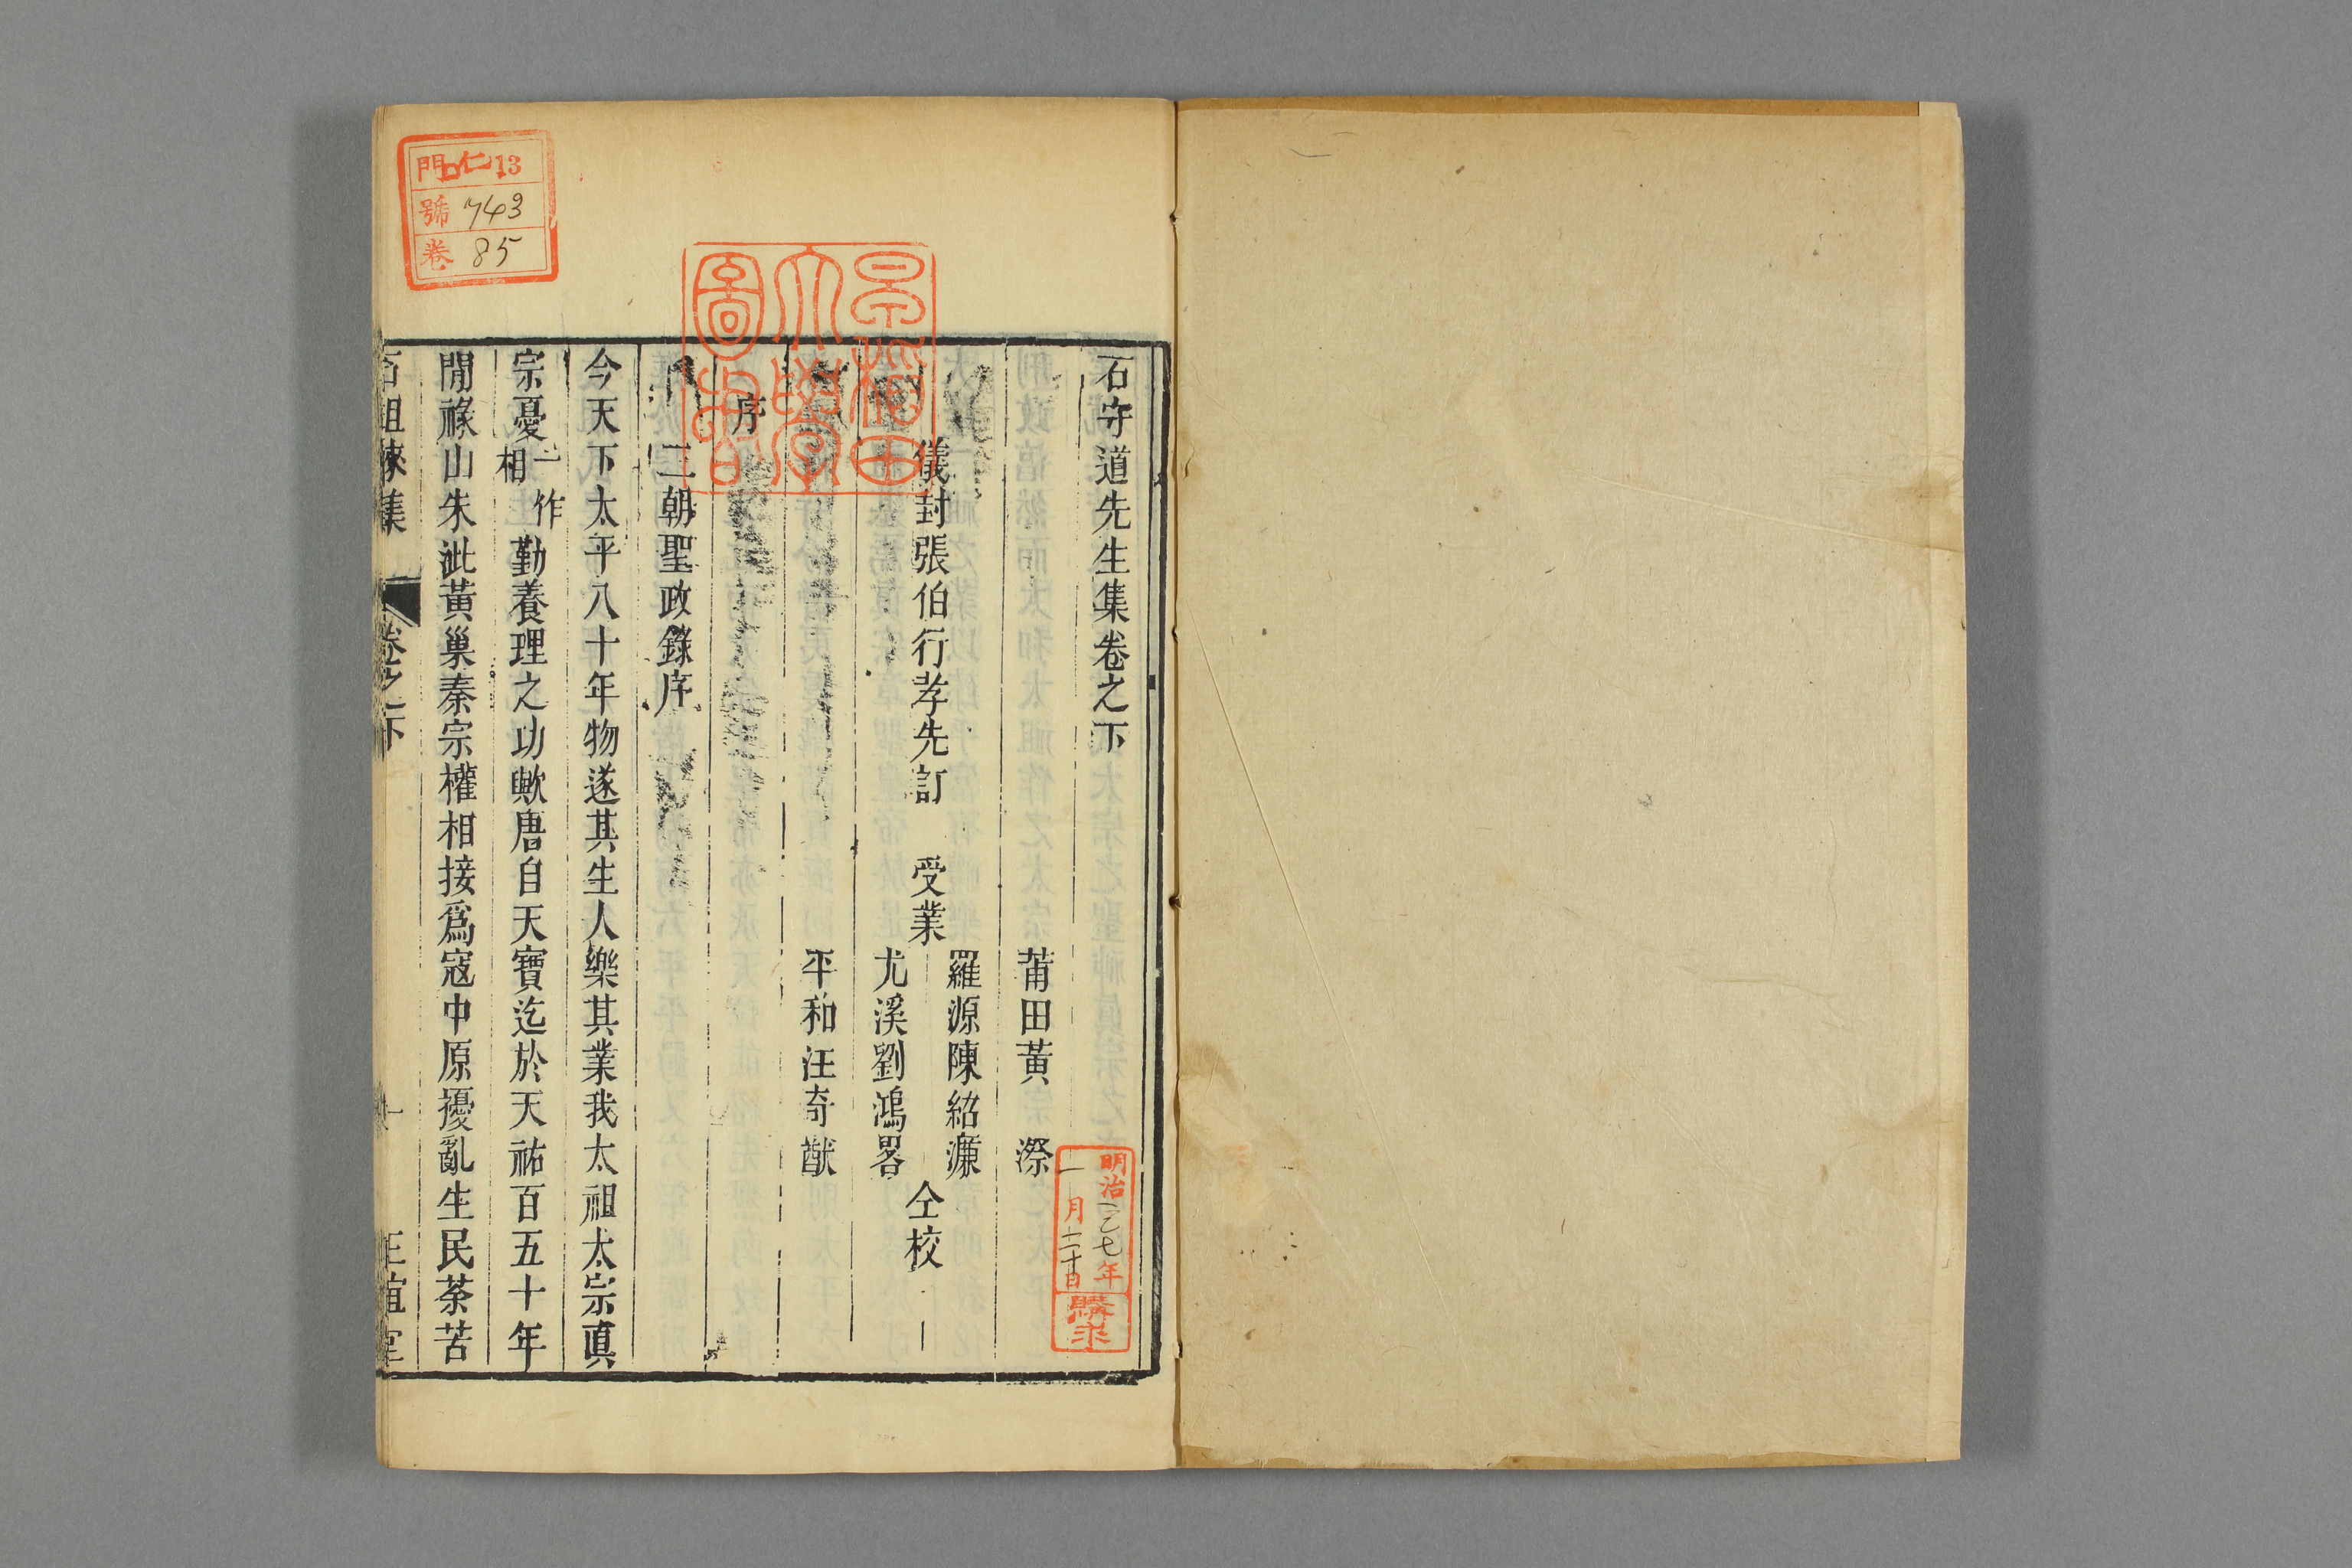 石守道先生集卷之下
莆田黃　漈
儀封張伯行孝先訂　受業
羅源陳紹濂
尤溪劉鴻畧
仝校
平和汪奇猷
序
三朝聖政錄序
今天下太平八十年物遂其生人樂其業我太祖太宗眞
宗憂一作相勤養理之功歟唐自天寶迄於天祐百五十年
閒祿山朱泚黃巢秦宗權相接爲寇中原擾亂生民荼苦
石徂徠集　卷之下　一　正誼堂
早稻田大學圖書
門 仁13
號 743
卷 85
明治三七年
一月二十日
購求